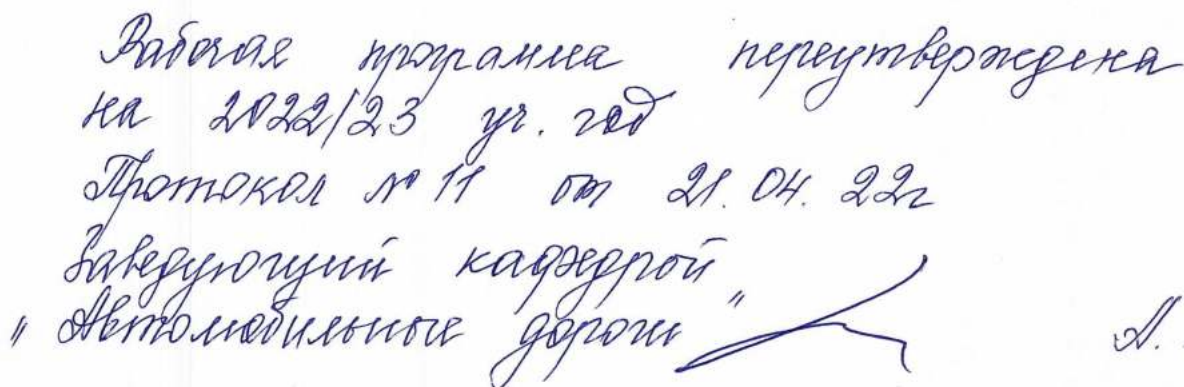 Рабочая программа переутверждена
на 2022/23 уч. год
Протокол № 11 от 21. 04. 22г
Заведующий кафедрой
"Автомобильные дороги" А.